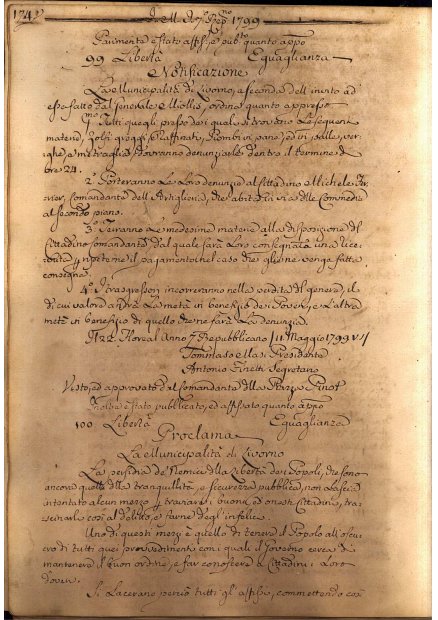 174
1799
Parimente è stato affisso, e pub.to quanto app.o
99 Libertà Eguaglianza
Notificazione
La Municipalità di Livorno, a seconda dell'invito ad
essa fatto dal Generale Miollis, ordina quanto appresso
P.mo Tutti quegli presso dei quali si trovano le seguenti
materie, zolfi greggi, e raffinati, Piombi in pane, ed in palle, ver-
ghe, e mitraglia dovranno denunziarle dentro il termine di
ore 24.
2.o Porteranno le loro denunzie al Cittadino Michele
Comandante dell'Artiglieria, che abita in via della Commedia
al secondo piano.
3.o Terranno le medesime materie alla disposizione del
Cittadino Comandante dal quale sarà loro consegnata una rice-
vuta il pagamento nel caso che gliene venga fatta
consegna.
4.o I trasgressori incorreranno nella perdita del genere, il
di cui valore andrà la metà in benefizio dei Poveri, e l'altra
metà in benefizio di quello che ne farà la denunzia.
Li 22. Floreal Anno 7 Repubblicano / 11 Maggio 1799 V.S/
Tommaso Presidente
Antonio Finetti Segretario
Visto, ed approvato dal Comandante della Piazza Pinot
Inoltre è stato pubblicato, ed affissato quanto app.o
100 Libertà Eguaglianza
Proclama
La Municipalità di Livorno
La perfidia de' Nemici della Libertà dei Popoli, che sono
ancora quelli della tranquillità, e sicurezza pubblica, non lascia
intentato alcun mezzo traviare i buoni, ed onesti Cittadini, tra-
scinarli così al delitto, e farne degl'infelici.
Uno di questi mezzi è quello di tenere il Popolo all'oscu-
ro di tutti quei provvedimenti con i quali il Governo cerca di
mantenere il buon ordine, e far conoscere a Cittadini i Loro
doveri.
Si lacerano perciò tutti gl'affissi, commettendo così